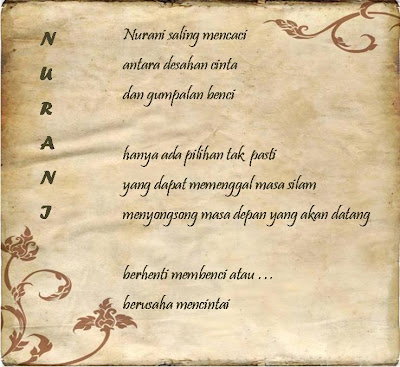 NURANI
Nurani saling mencaci
antara desahan cinta
dan gumpalan benci
hanya ada pilihan tak pasti
yang dapat memenggal masa silam
menyongsong masa depan yang akan datang
berhenti membenci atau ...
berusaha mencintai